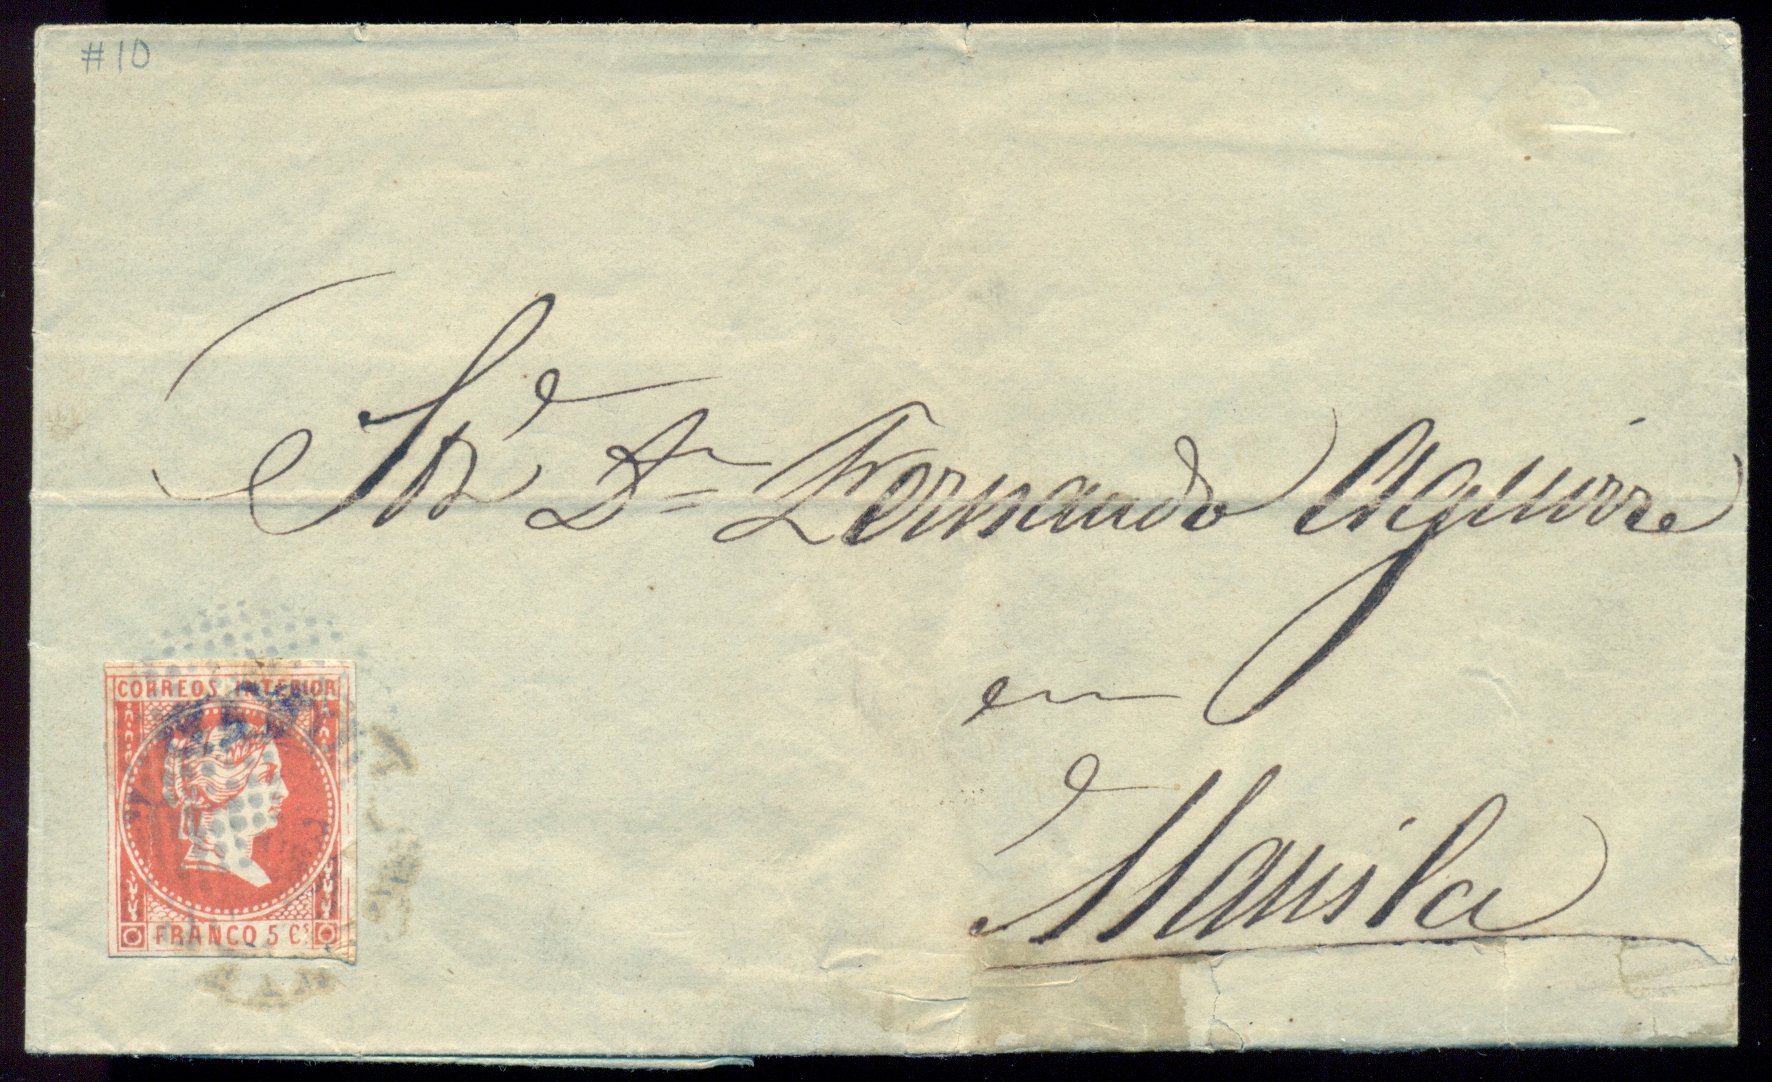 #10
Sr. Dn Fernando Aguirre
en
Manila
CORREOS INTERIOR
FRANCO 5 Cs